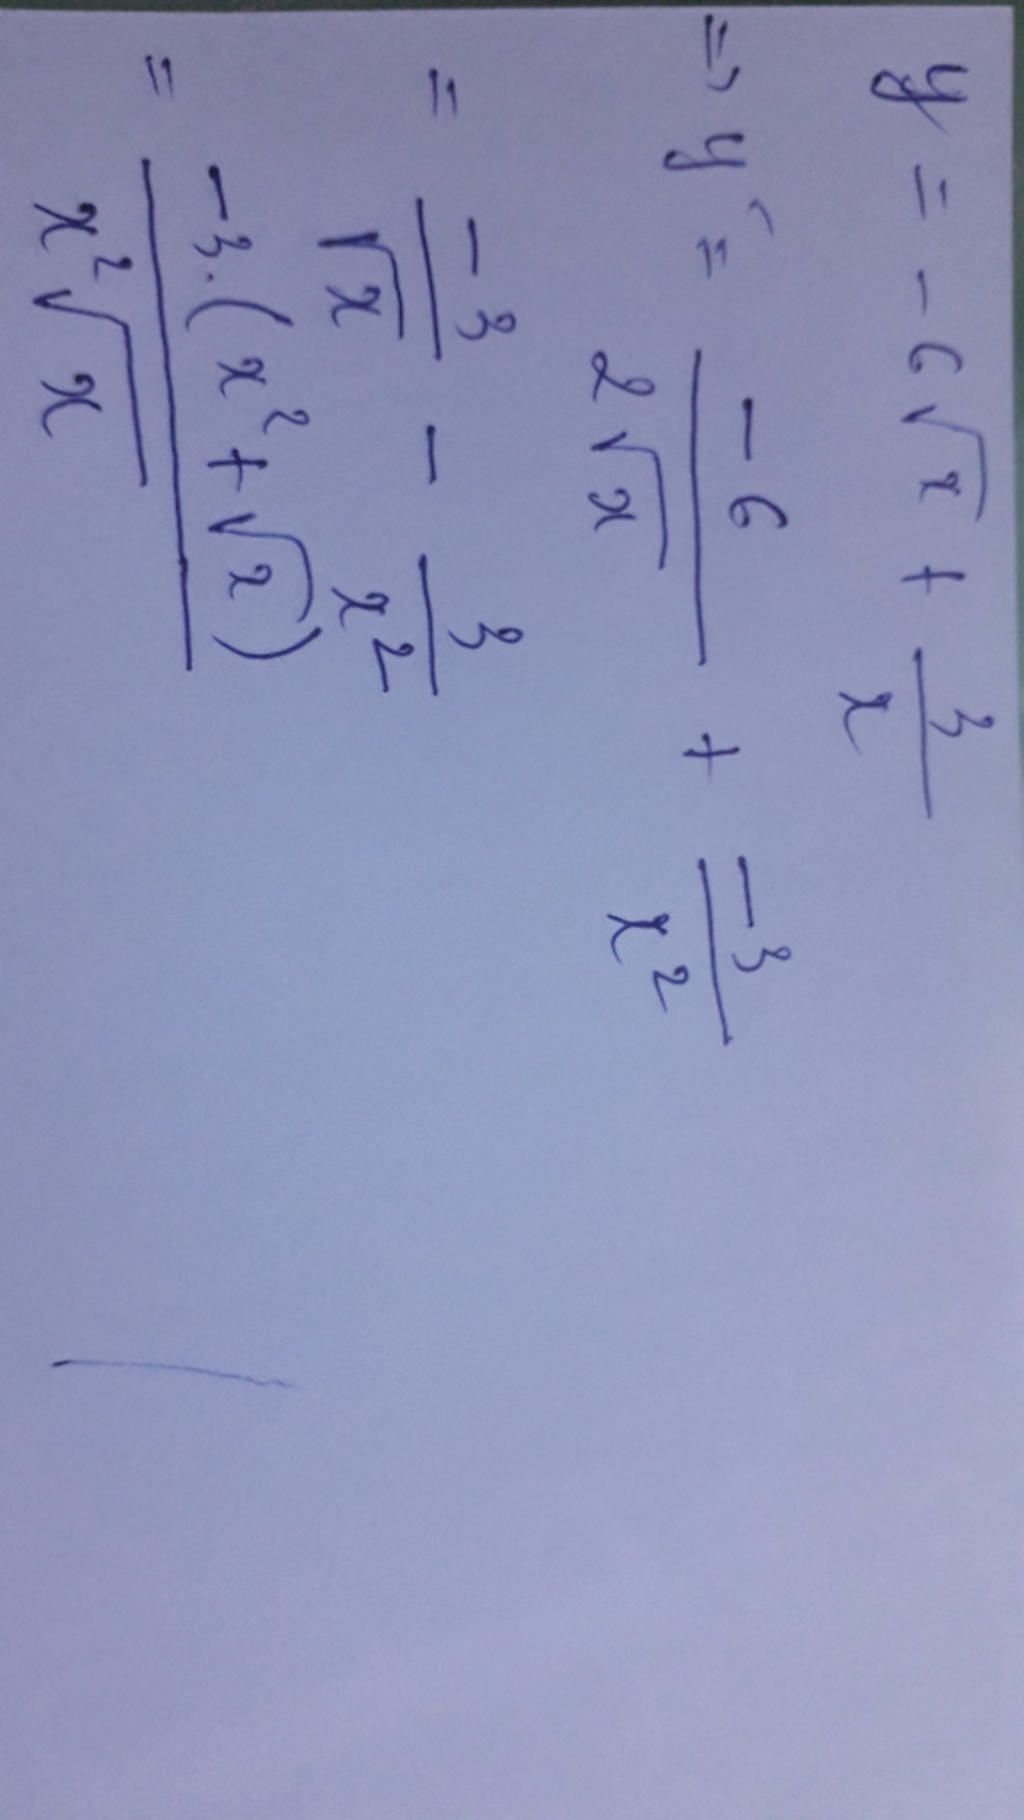 y = -6√x + 3/x
=> y' = -6/2√x + -3/x²
= -3/√x - 3/x²
= -3.(x² + √x)/x²√x